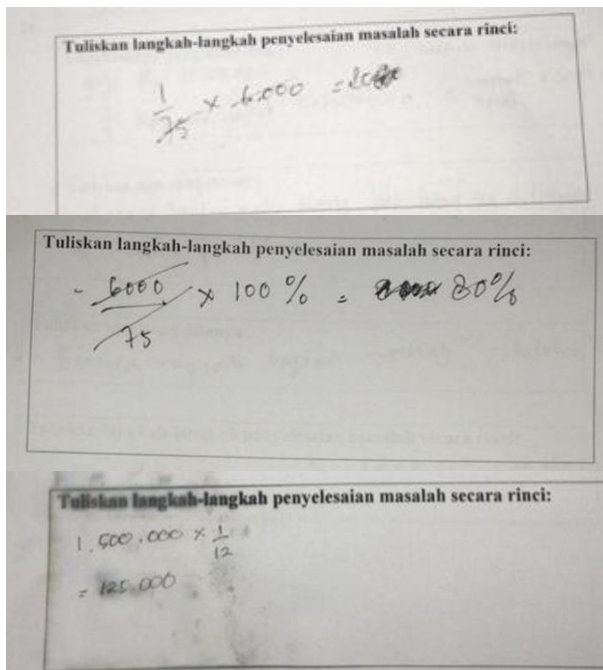 Tuliskan langkah-langkah penyelesaian masalah secara rinci:
1/75 × 6.000 =
Tuliskan langkah-langkah penyelesaian masalah secara rinci:
- 6000/75 × 100 % = 80%
Tuliskan langkah-langkah penyelesaian masalah secara rinci:
1.500.000 × 1/12
= 125.000